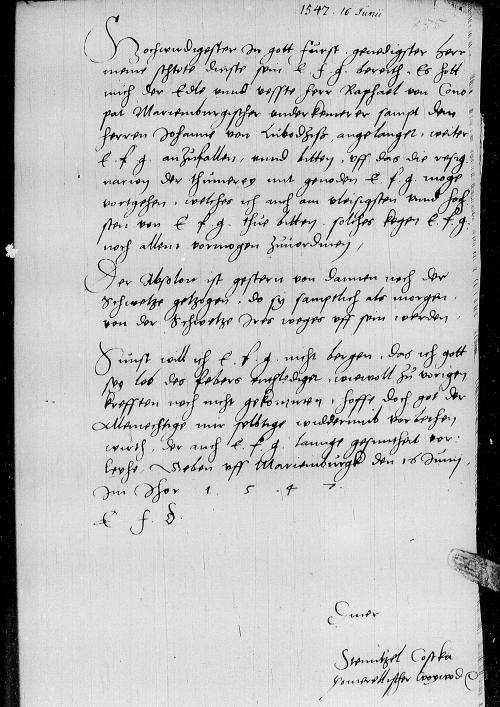 1547. 16 Junii
Hochwirdigester in gott furst genedigster herr
meine stete dinste sein E f g bereith. Es hott
mich der Edle unnd veste herr Raphael von Cono-
pat Marienburgischer underkemerer sampt dem
herren Johanne von Lubodzißz angelanget, weiter
E. f. g. anzufallen, unnd bitten, uff das die resig-
nation der thumerey mit genoden E f g. moge
vortgehen, welches ich auch am vleisigsten unnd hoch-
sten von E f g. thue bitten, solches kegen E. f. g.
noch allem vormogen zuvordinen,
Der Absolon ist gestern von dannen noch der
Schwetze getzogen, do sy sampelich als morgen
von der Schwetze Ires weges uff sein werden,
Sunst will ich E. f. g. nicht bergen, das ich gott
sey lob des febers entlediget, wiewoll zu vorigen
krefften noch nicht gekommen, hoffe doch got der
Allmechtige mir solttige widdermub vorleihen
wirth, der auch E f. g. lannge gesuntheit vor-
leyhe, Geben uff Marienburgk den 16 Junij
Im Jhor 1. 5. 4 7.
E f G.
Diner
Stenitzel Costka
pomerellischer woywod